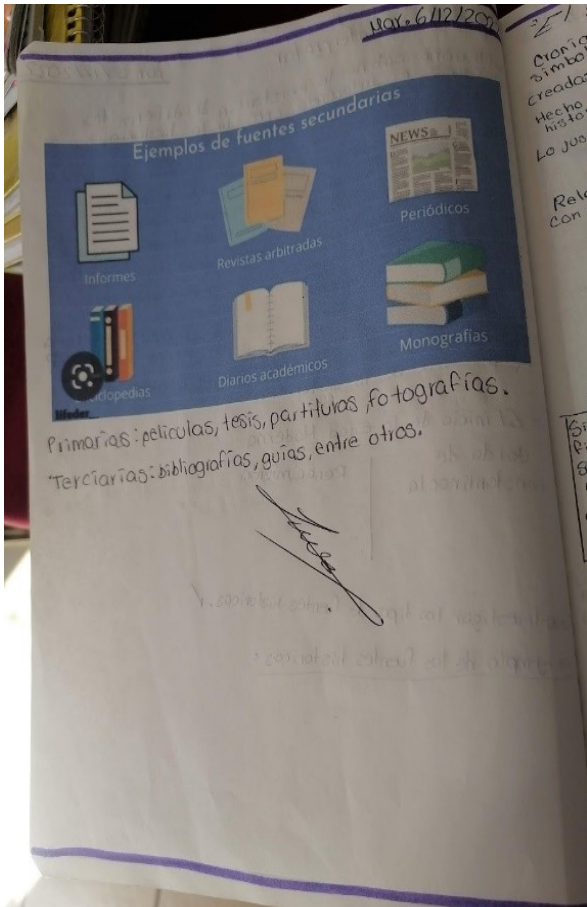 Mar. 6/12/202
Ejemplos de fuentes secundarias
NEWS
Informes
Revistas arbitradas
Periódicos
ciclopedias
Diarios académicos
Monografías
lifeder
Primarias: películas, tesis, partituras, fotografías.
Terciarias: bibliografías, guías, entre otros.
creadas
Hecho
Lo jus
Rela
con